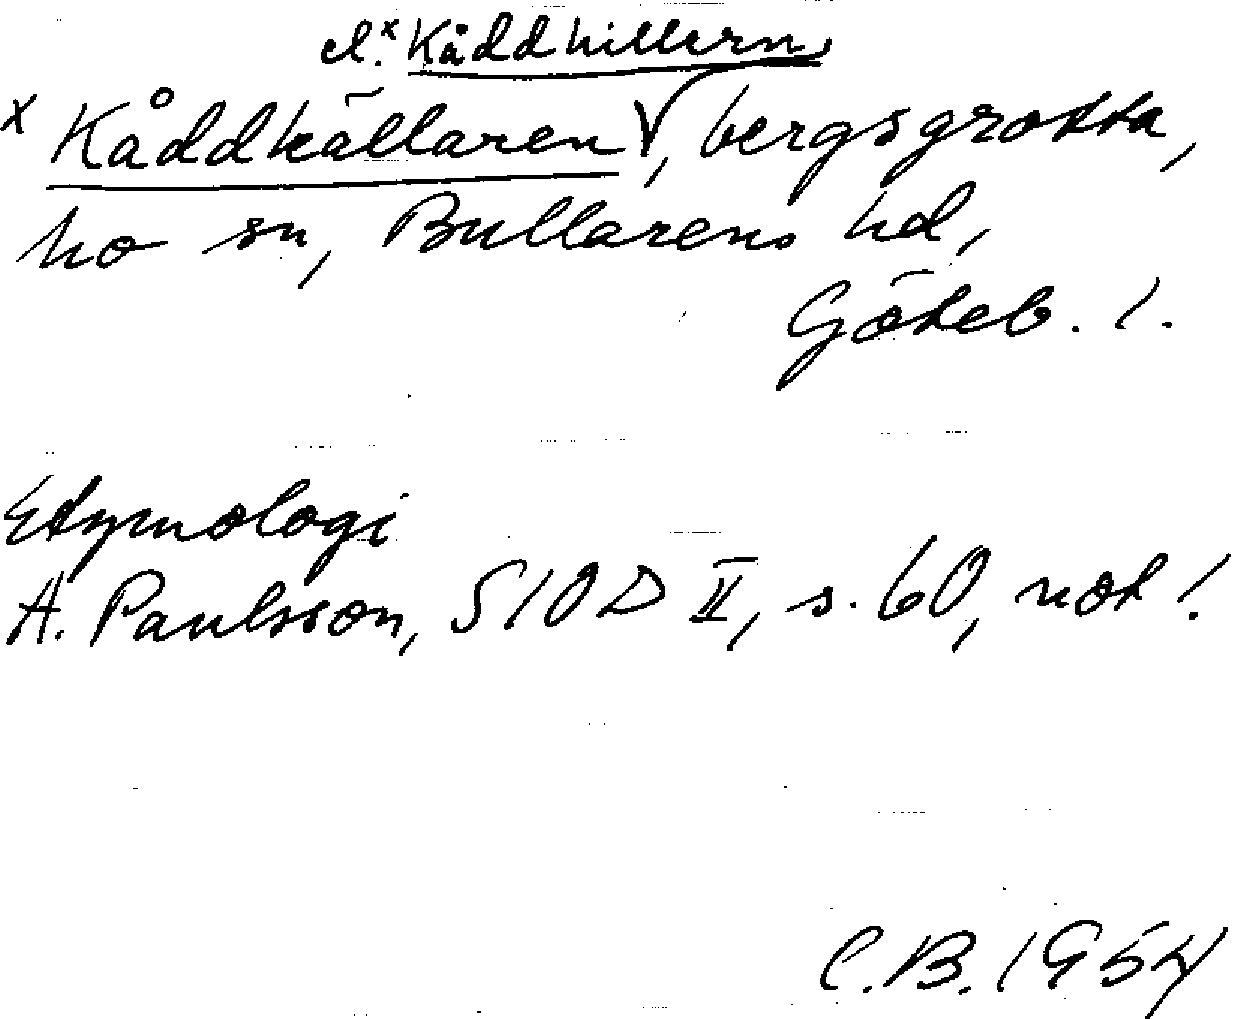 el. ˣKåddhillern
ˣ Kåddkällaren √, bergsgrotta,
ho sn, Bullarens hd,
Göteb. l.
Etymologi
A. Paulsson, SIOD II, s. 60, not 1
C.B. 1954